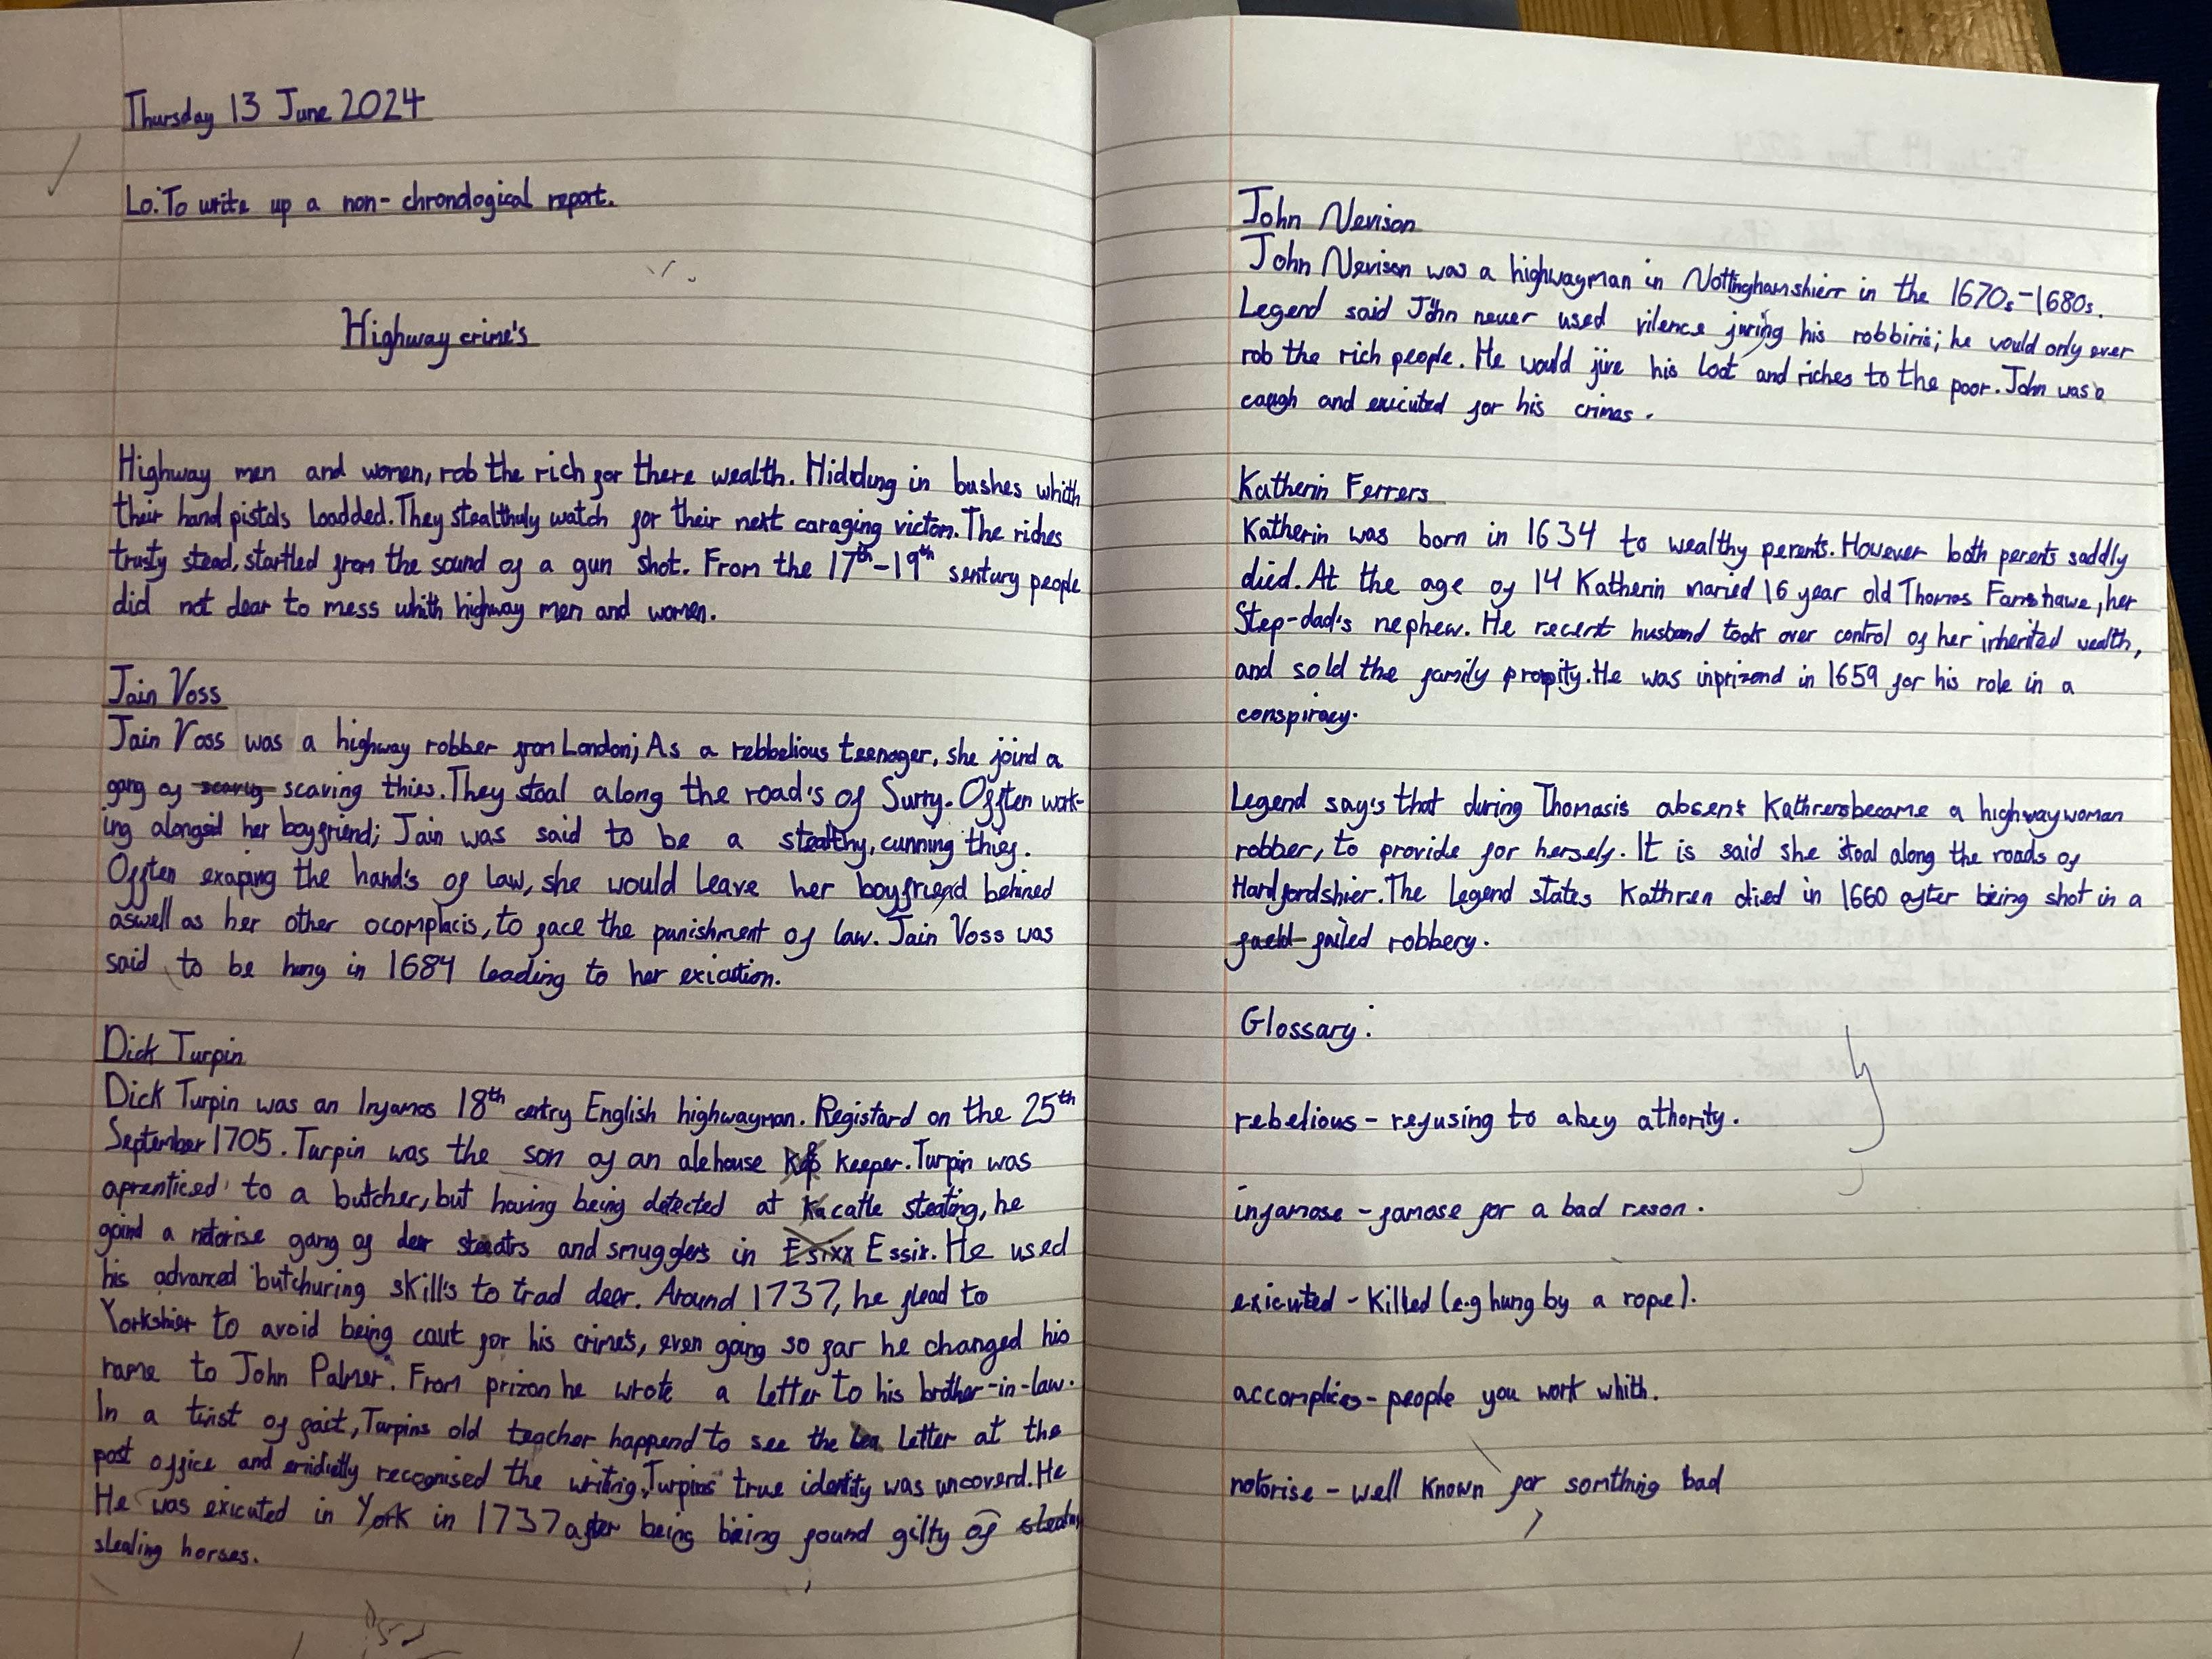 Thursday 13 June 2024
Lo: To write up a non-chronological report.
Highway crime's
Highway men and women, rob the rich for there wealth. Hidding in bushes whith
their hand pistols loadded. They stealthuly watch for their next caraging victom. The riches
trusty stead, startled from the sound of a gun shot. From the 17th-19th sentury people
did not dear to mess whith highway men and women.
Jain Voss
Jain Voss was a highway robber from London; As a rebbelious teenager, she joind a
gang of scaving thies. They stoal along the road's of Surry. Offten work-
ing alongsid her boyfriend; Jain was said to be a stealthy, cunning thief.
Offten exaping the hand's of law, she would leave her boyfriend behined
aswell as her other ocomplacis, to face the punishment of law. Jain Voss was
said to be hung in 1684 leading to her exicution.
Dick Turpin
Dick Turpin was an Infamos 18th centry English highwayman. Registard on the 25th
September 1705. Turpin was the son of an alehouse keeper. Turpin was
aprenticed to a butcher, but having being detected at catle stealing, he
goind a notorise gang of deer and smugglers in Essix. He used
his advanced butchuring skill's to trad deer. Around 1737, he flead to
Yorkshier to avoid being caut for his crime's, even going so far he changed his
name to John Palmer. From prizon he wrote a letter to his brother-in-law.
In a twist of fait, Turpins old teacher happend to see the letter at the
post office and recognised the writing, Turpins' true identity was uncoverd. He
He was exicuted in York in 1737 after being being found gilty of
stealing horses.
John Nevison
John Nevison was a highwayman in Nottinghamshierr in the 1670s-1680s.
Legend said John never used vilence juring his robbiris; he would only ever
rob the rich people. He would jive his loot and riches to the poor. John was
caugh and exicuted for his crimes.
Katherin Ferrers
Katherin was born in 1634 to wealthy perents. However both perents saddly
died. At the age of 14 Katherin maried 16 year old Thomas Fanshawe, her
Step-dad's nephew. He recent husband took over control of her inherited wealth,
and sold the family propity. He was inprizond in 1659 for his role in a
conspiracy.
Legend say's that during Thomasis absent Kathren became a highwaywoman
robber, to provide for herself. It is said she stoal along the roads of
Hardfordshier. The Legend states Kathren died in 1660 after being shot in a
failed robbery.
Glossary:
rebelious - refusing to abey athority.
infamose - famose for a bad reson.
exicuted - killed (e.g hung by a rope).
accomplices - people you work whith.
notorise - well known for somthing bad